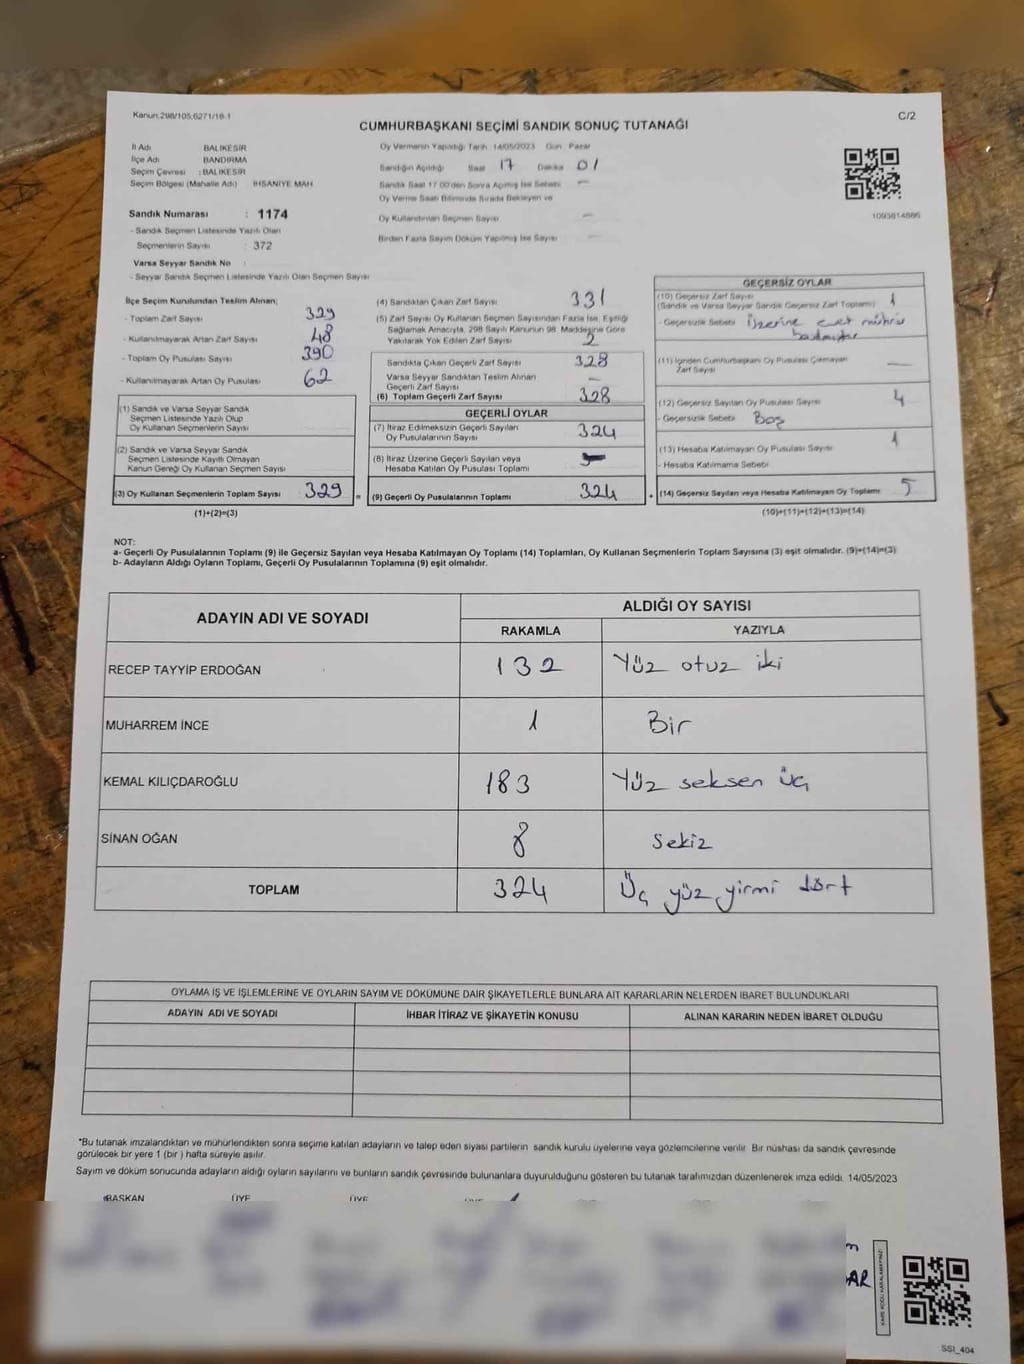 Kanun:298/105,6271/18-1
C/2
CUMHURBAŞKANI SEÇİMİ SANDIK SONUÇ TUTANAĞI
İl Adı BALIKESİR
İlçe Adı BANDIRMA
Seçim Çevresi : BALIKESİR
Seçim Bölgesi (Mahalle Adı) : İHSANİYE MAH.
Sandık Numarası : 1174
- Sandık Seçmen Listesinde Yazılı Olan
Seçmenlerin Sayısı : 372
Varsa Seyyar Sandık No :
- Seyyar Sandık Seçmen Listesinde Yazılı Olan Seçmen Sayısı :
Oy Vermenin Yapıldığı Tarih: 14/05/2023 Gün: Pazar
Sandığın Açıldığı Saat 17 Dakika 01
Sandık Saat 17.00'den Sonra Açılmış İse Sebebi —
Oy Verme Saati Bitiminde Sırada Bekleyen ve
Oy Kullandırılan Seçmen Sayısı —
Birden Fazla Sayım Döküm Yapılmış İse Sayısı —
1093814886
İlçe Seçim Kurulundan Teslim Alınan;
- Toplam Zarf Sayısı 329
- Kullanılmayarak Artan Zarf Sayısı 48
- Toplam Oy Pusulası Sayısı 390
- Kullanılmayarak Artan Oy Pusulası 62
(1) Sandık ve Varsa Seyyar Sandık
Seçmen Listesinde Yazılı Olup
Oy Kullanan Seçmenlerin Sayısı
(2) Sandık ve Varsa Seyyar Sandık
Seçmen Listesinde Kayıtlı Olmayan
Kanun Gereği Oy Kullanan Seçmen Sayısı
(3) Oy Kullanan Seçmenlerin Toplam Sayısı 329 =
(1)+(2)=(3)
(4) Sandıktan Çıkan Zarf Sayısı 331
(5) Zarf Sayısı Oy Kullanan Seçmen Sayısından Fazla İse, Eşitliği
Sağlamak Amacıyla, 298 Sayılı Kanunun 98. Maddesine Göre
Yakılarak Yok Edilen Zarf Sayısı 2
Sandıkta Çıkan Geçerli Zarf Sayısı 328
Varsa Seyyar Sandıktan Teslim Alınan
Geçerli Zarf Sayısı —
(6) Toplam Geçerli Zarf Sayısı 328
GEÇERLİ OYLAR
(7) İtiraz Edilmeksizin Geçerli Sayılan
Oy Pusulalarının Sayısı 324
(8) İtiraz Üzerine Geçerli Sayılan veya
Hesaba Katılan Oy Pusulası Toplamı
(9) Geçerli Oy Pusulalarının Toplamı 324 +
GEÇERSİZ OYLAR
(10) Geçersiz Zarf Sayısı
(Sandık ve Varsa Seyyar Sandık Geçersiz Zarf Toplamı) 1
- Geçersizlik Sebebi Üzerine evet mührü
basılmıştır
(11) İçinden Cumhurbaşkanı Oy Pusulası Çıkmayan
Zarf Sayısı —
(12) Geçersiz Sayılan Oy Pusulası Sayısı 4
- Geçersizlik Sebebi Boş
(13) Hesaba Katılmayan Oy Pusulası Sayısı 1
- Hesaba Katılmama Sebebi
(14) Geçersiz Sayılan veya Hesaba Katılmayan Oy Toplamı 5
(10)+(11)+(12)+(13)=(14)
NOT:
a- Geçerli Oy Pusulalarının Toplamı (9) ile Geçersiz Sayılan veya Hesaba Katılmayan Oy Toplamı (14) Toplamları, Oy Kullanan Seçmenlerin Toplam Sayısına (3) eşit olmalıdır. (9)+(14)=(3)
b- Adayların Aldığı Oyların Toplamı, Geçerli Oy Pusulalarının Toplamına (9) eşit olmalıdır.
ADAYIN ADI VE SOYADI ALDIĞI OY SAYISI
RAKAMLA YAZIYLA
RECEP TAYYİP ERDOĞAN 132 Yüz otuz iki
MUHARREM İNCE 1 Bir
KEMAL KILIÇDAROĞLU 183 Yüz seksen üç
SİNAN OĞAN 8 Sekiz
TOPLAM 324 Üç yüz yirmi dört
OYLAMA İŞ VE İŞLEMLERİNE VE OYLARIN SAYIM VE DÖKÜMÜNE DAİR ŞİKAYETLERLE BUNLARA AİT KARARLARIN NELERDEN İBARET BULUNDUKLARI
ADAYIN ADI VE SOYADI İHBAR İTİRAZ VE ŞİKAYETİN KONUSU ALINAN KARARIN NEDEN İBARET OLDUĞU
*Bu tutanak imzalandıktan ve mühürlendikten sonra seçime katılan adayların ve talep eden siyasi partilerin sandık kurulu üyelerine veya gözlemcilerine verilir. Bir nüshası da sandık çevresinde
görülecek bir yere 1 (bir ) hafta süreyle asılır.
Sayım ve döküm sonucunda adayların aldığı oyların sayılarını ve bunların sandık çevresinde bulunanlara duyurulduğunu gösteren bu tutanak tarafımızdan düzenlenerek imza edildi. 14/05/2023
BAŞKAN ÜYE ÜYE
AR
SSI_404